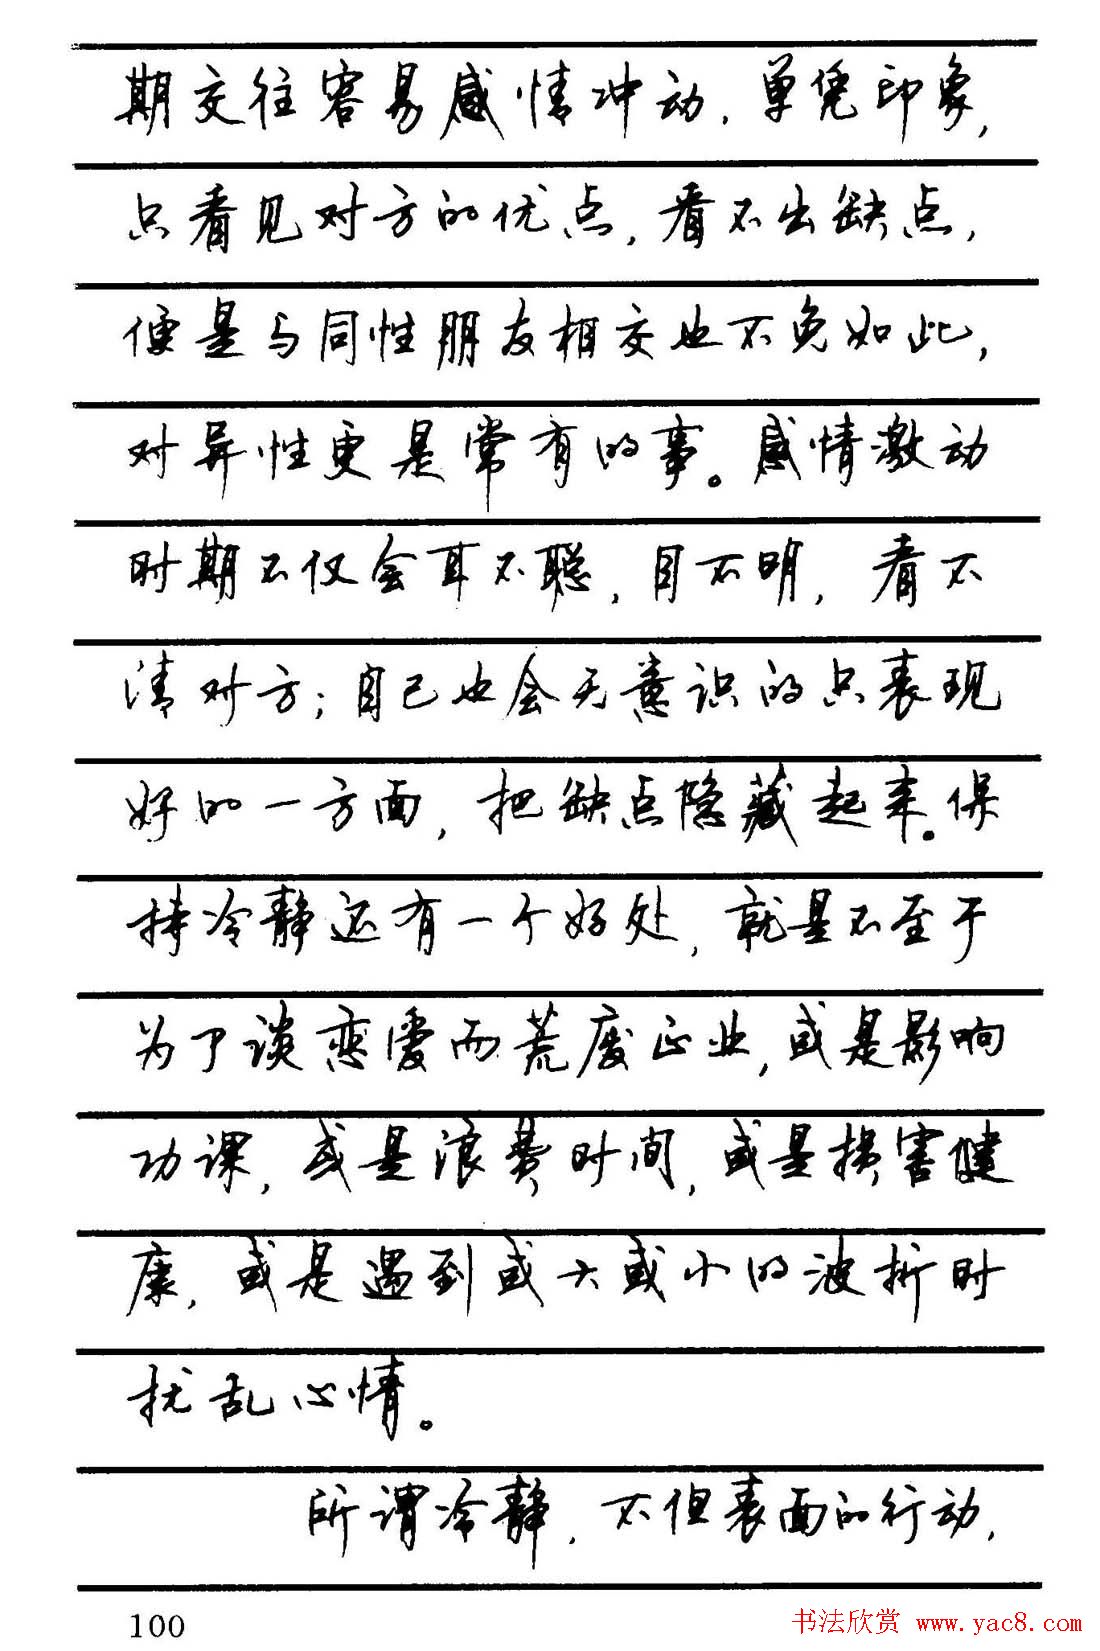 期交往容易感情冲动，单凭印象，
只看见对方的优点，看不出缺点，
便是与同性朋友相交也不免如此，
对异性更是常有的事。感情激动
时期不仅会耳不聪，目不明，看不
清对方；自己也会无意识的只表现
好的一方面，把缺点隐藏起来。保
持冷静还有一个好处，就是不至于
为了谈恋爱而荒废正业，或是影响
功课，或是浪费时间，或是损害健
康，或是遇到或大或小的波折时
扰乱心情。
所谓冷静，不但表面的行动，
100
书法欣赏 www.yac8.com